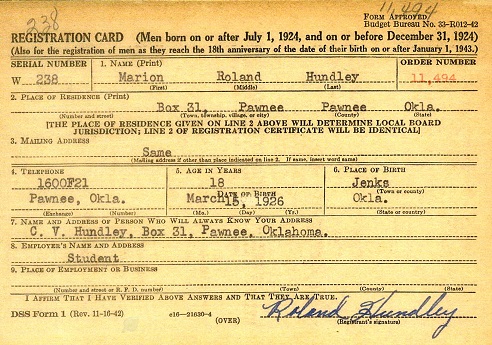 238
11,494
Form Approved
Budget Bureau No. 33-R012-42
REGISTRATION CARD (Men born on or after July 1, 1924, and on or before December 31, 1924)
(Also for the registration of men as they reach the 18th anniversary of the date of their birth on or after January 1, 1943.)
SERIAL NUMBER 1. NAME (Print) ORDER NUMBER
W 238 Marion Roland Hundley 11,494
(First) (Middle) (Last)
2. PLACE OF RESIDENCE (Print)
Box 31, Pawnee Pawnee Okla.
(Number and street) (Town, township, village, or city) (County) (State)
[THE PLACE OF RESIDENCE GIVEN ON LINE 2 ABOVE WILL DETERMINE LOCAL BOARD
JURISDICTION; LINE 2 OF REGISTRATION CERTIFICATE WILL BE IDENTICAL]
3. MAILING ADDRESS
Same
(Mailing address if other than place indicated on line 2. If same, insert word same)
4. TELEPHONE 5. AGE IN YEARS 6. PLACE OF BIRTH
1600F21 18 Jenks
DATE OF BIRTH (Town or county)
Pawnee, Okla. March 15, 1926 Okla.
(Exchange) (Number) (Mo.) (Day) (Yr.) (State or country)
7. NAME AND ADDRESS OF PERSON WHO WILL ALWAYS KNOW YOUR ADDRESS
C. V. Hundley, Box 31, Pawnee, Oklahoma.
8. EMPLOYER'S NAME AND ADDRESS
Student
9. PLACE OF EMPLOYMENT OR BUSINESS
(Number and street or R. F. D. number) (Town) (County) (State)
I AFFIRM THAT I HAVE VERIFIED ABOVE ANSWERS AND THAT THEY ARE TRUE.
DSS Form 1 (Rev. 11-16-42) 16—21630-4 Roland Hundley
(OVER) (Registrant's signature)